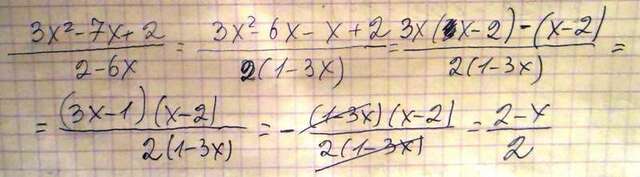 (3x²-7x+2)/(2-6x) = (3x²-6x-x+2)/(2(1-3x)) = (3x(x-2)-(x-2))/(2(1-3x)) =
= ((3x-1)(x-2))/(2(1-3x)) = -((1-3x)(x-2))/(2(1-3x)) = (2-x)/2